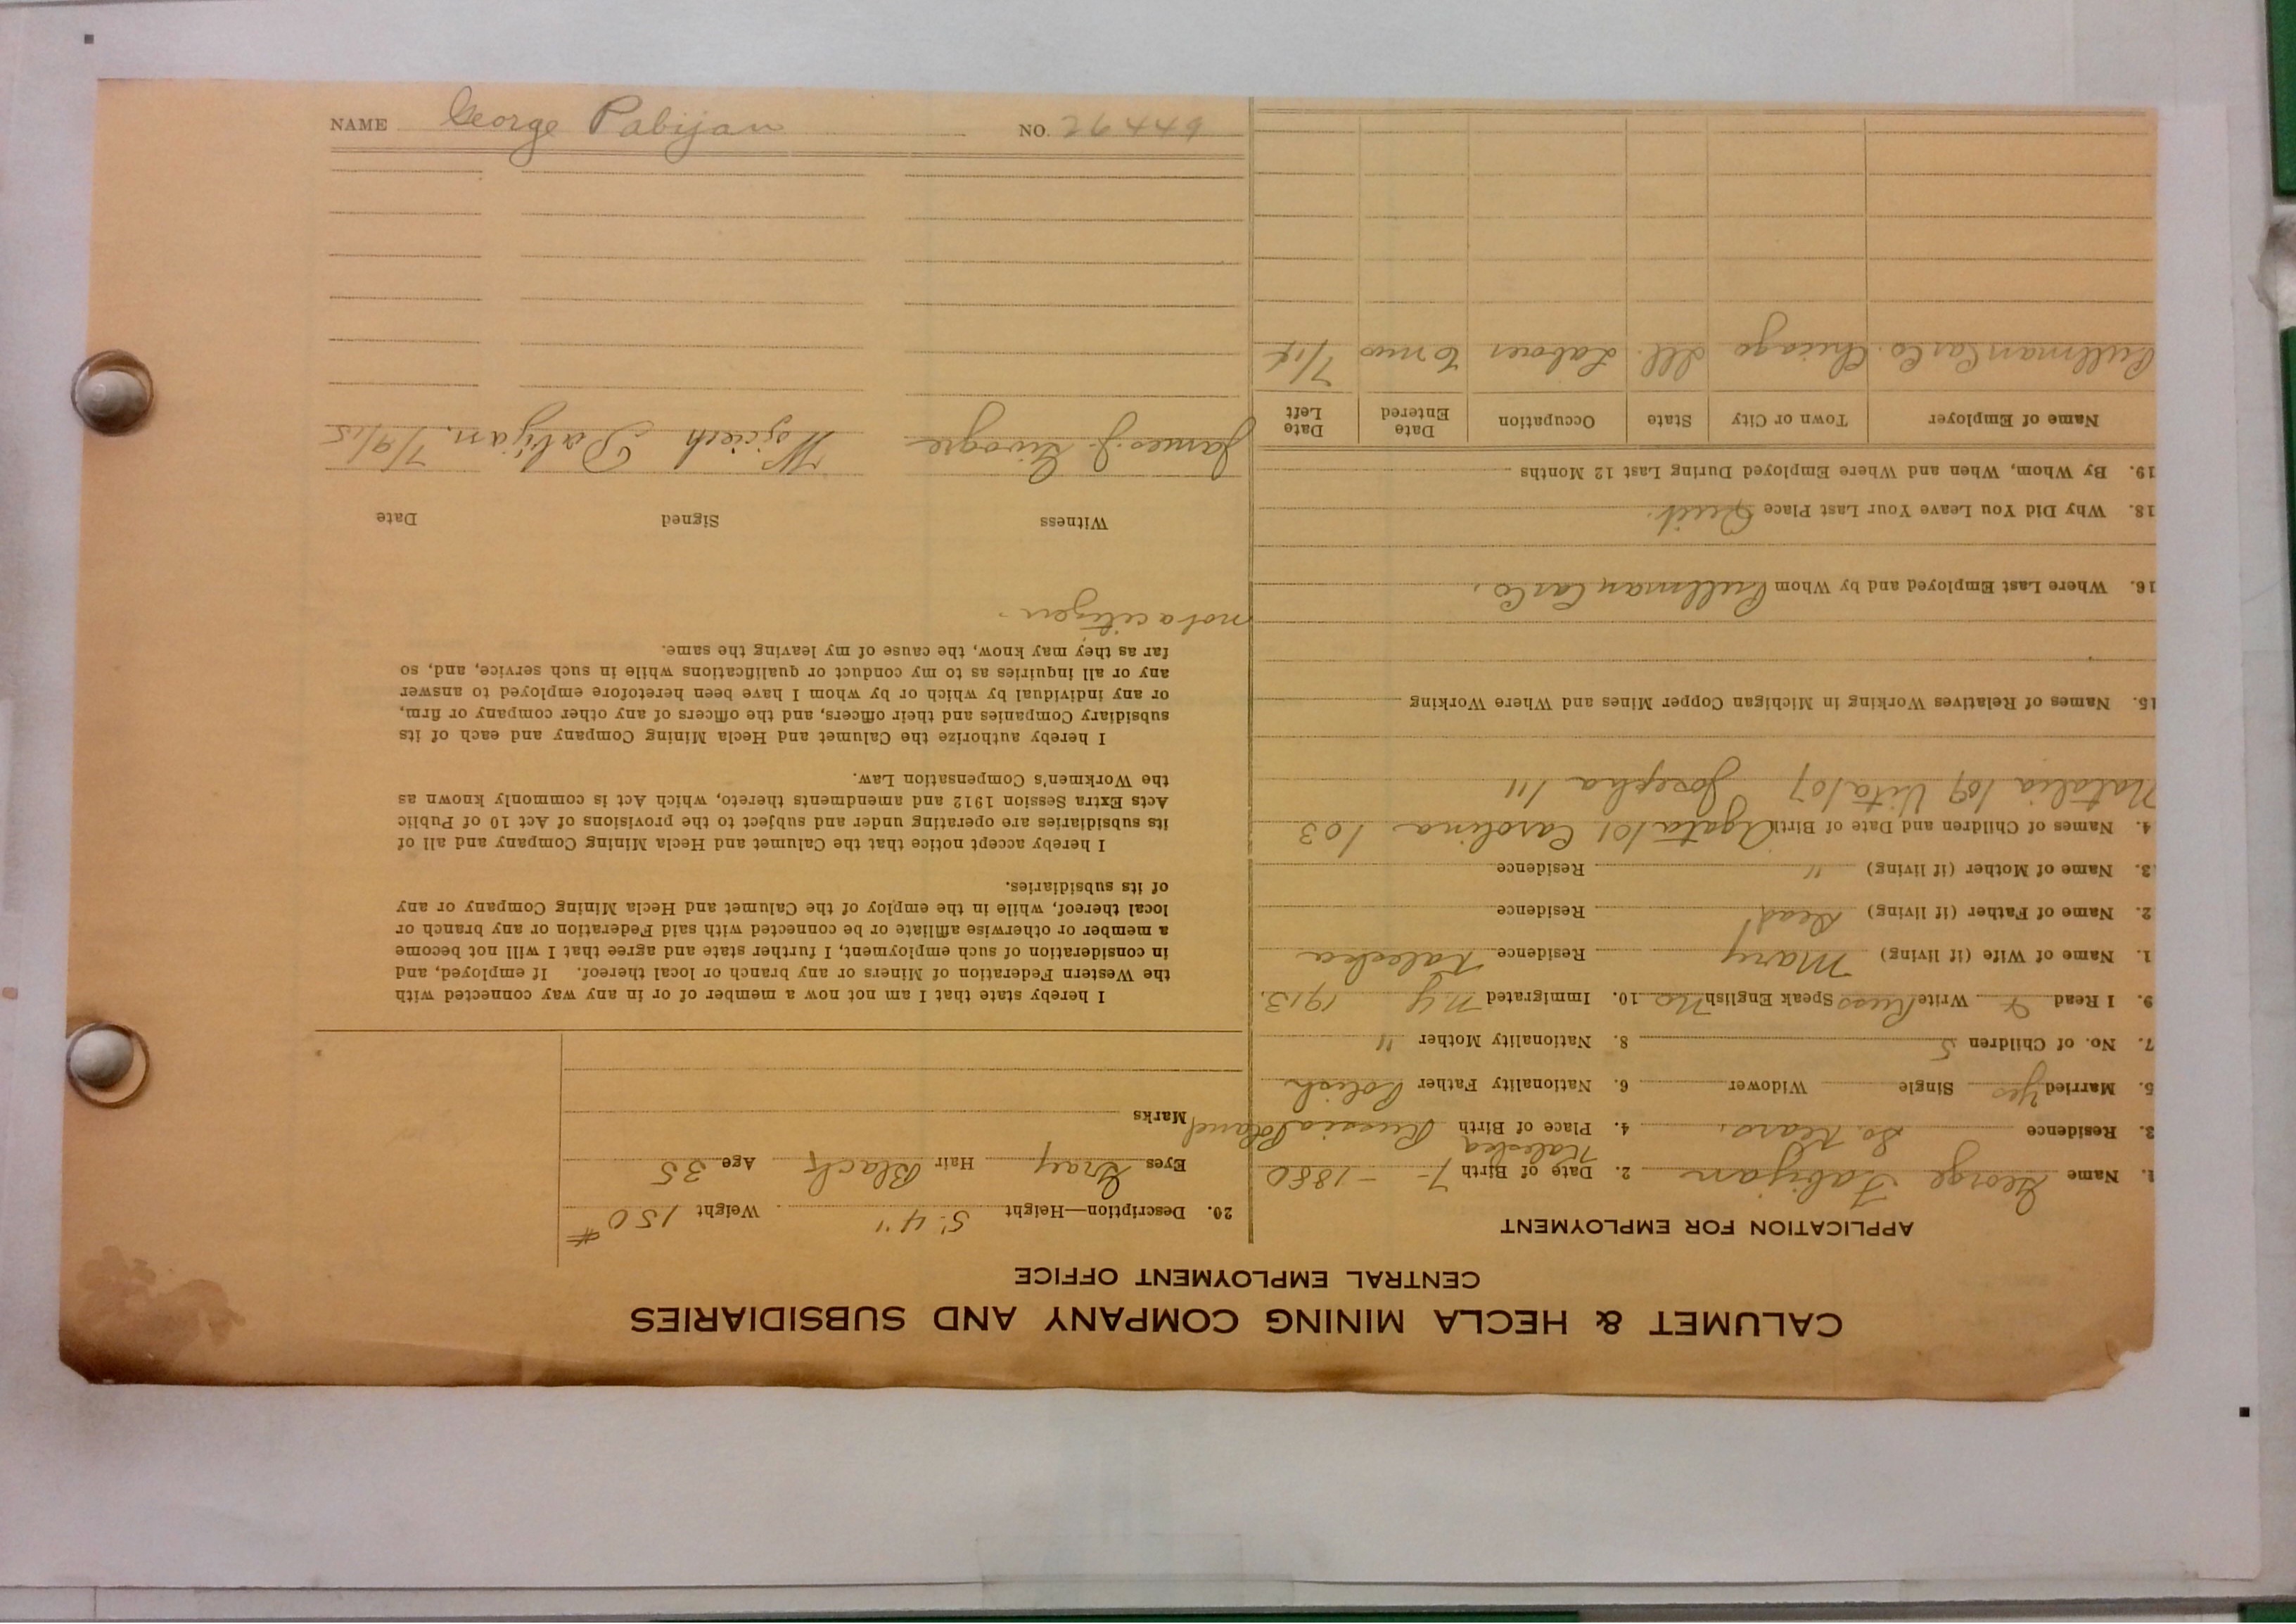 NAME George Pabijan NO. 26449
CALUMET & HECLA MINING COMPANY AND SUBSIDIARIES
CENTRAL EMPLOYMENT OFFICE
APPLICATION FOR EMPLOYMENT
1. Name George Fabijan 2. Date of Birth 7 - 1880
3. Residence So. Kears. 4. Place of Birth Russia Poland
5. Married Yes Single Widower 6. Nationality Father Polish
7. No. of Children 5 8. Nationality Mother "
9. I Read & Write Russ Speak English No 10. Immigrated My 1913.
1. Name of Wife (if living) Mary Residence
2. Name of Father (if living) Dead Residence
3. Name of Mother (if living) " Residence
4. Names of Children and Date of Birth Agata /01 Carolina /03
Natalia /09 Vita /07 Josepha /11
15. Names of Relatives Working in Michigan Copper Mines and Where Working
16. Where Last Employed and by Whom Pullman Car Co.
18. Why Did You Leave Your Last Place Quit.
19. By Whom, When and Where Employed During Last 12 Months
Name of Employer Town or City State Occupation Date Entered Date Left
Pullman Car Co. Chicago Ill. Laborer 6 mos 7/15
20. Description—Height 5' 4" Weight 150 #
Eyes Gray Hair Black Age 35
Marks
I hereby state that I am not now a member of or in any way connected with
the Western Federation of Miners or any branch or local thereof. If employed, and
in consideration of such employment, I further state and agree that I will not become
a member or otherwise affiliate or be connected with said Federation or any branch or
local thereof, while in the employ of the Calumet and Hecla Mining Company or any
of its subsidiaries.
I hereby accept notice that the Calumet and Hecla Mining Company and all of
its subsidiaries are operating under and subject to the provisions of Act 10 of Public
Acts Extra Session 1912 and amendments thereto, which Act is commonly known as
the Workmen's Compensation Law.
I hereby authorize the Calumet and Hecla Mining Company and each of its
subsidiary Companies and their officers, and the officers of any other company or firm,
or any individual by which or by whom I have been heretofore employed to answer
any or all inquiries as to my conduct or qualifications while in such service, and, so
far as they may know, the cause of my leaving the same.
not a citizen.
Witness Signed Date
James J. Wojciech Pabijan. 7/9/15